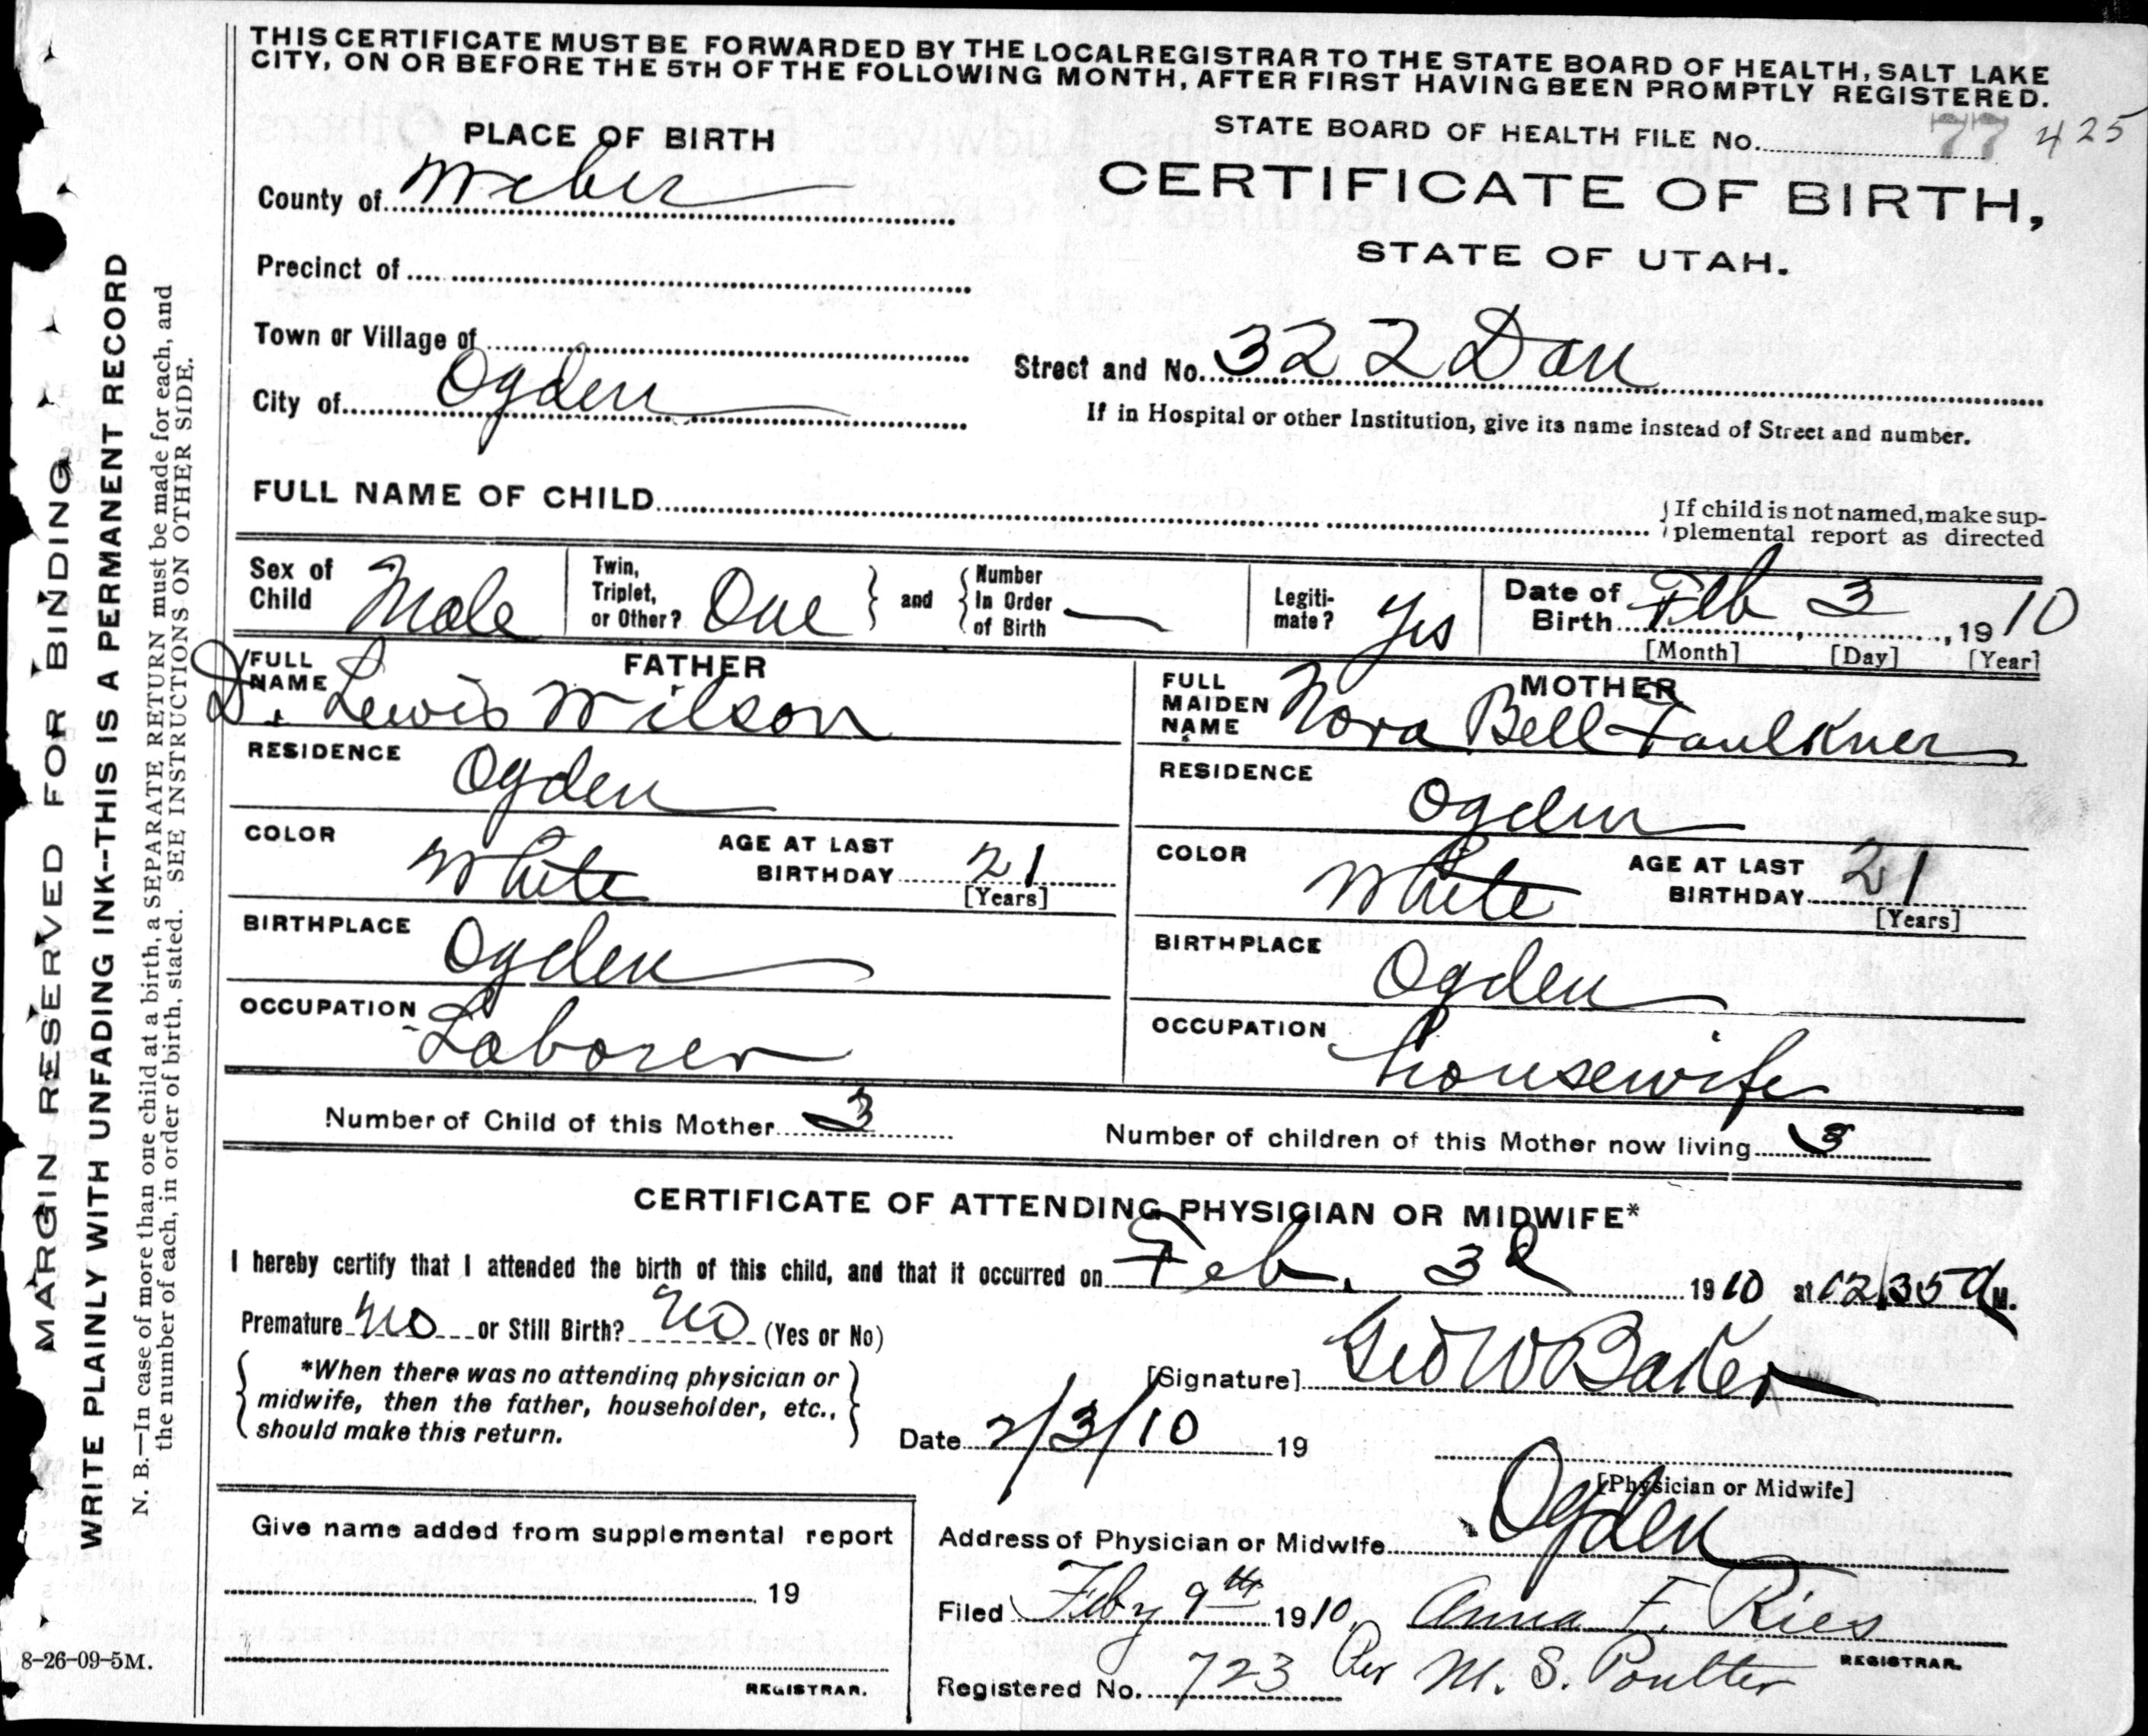 THIS CERTIFICATE MUST BE FORWARDED BY THE LOCAL REGISTRAR TO THE STATE BOARD OF HEALTH, SALT LAKE
CITY, ON OR BEFORE THE 5TH OF THE FOLLOWING MONTH, AFTER FIRST HAVING BEEN PROMPTLY REGISTERED.
STATE BOARD OF HEALTH FILE No. 77 425
PLACE OF BIRTH
CERTIFICATE OF BIRTH,
STATE OF UTAH.
County of Weber
Precinct of
Town or Village of
Street and No. 322 Dan
City of Ogden
If in Hospital or other Institution, give its name instead of Street and number.
FULL NAME OF CHILD
If child is not named, make sup-
plemental report as directed
Sex of Child Male
Twin, Triplet, or Other? One and Number In Order of Birth —
Legiti-mate? Yes
Date of Birth Feb 3, 1910
[Month] [Day] [Year]
FATHER
FULL NAME D. Lewis Wilson
MOTHER
FULL MAIDEN NAME Nora Bell Faulkner
RESIDENCE Ogden
RESIDENCE Ogden
COLOR White AGE AT LAST BIRTHDAY 21 [Years]
COLOR White AGE AT LAST BIRTHDAY 21 [Years]
BIRTHPLACE Ogden
BIRTHPLACE Ogden
OCCUPATION Laborer
OCCUPATION housewife
Number of Child of this Mother 3
Number of children of this Mother now living 3
CERTIFICATE OF ATTENDING PHYSICIAN OR MIDWIFE*
I hereby certify that I attended the birth of this child, and that it occurred on Feb. 3d 1910 at 12,35 A M.
Premature no or Still Birth? no (Yes or No)
*When there was no attending physician or
midwife, then the father, householder, etc.,
should make this return.
[Signature] Geo W Baker
Date 2/3/10 19
[Physician or Midwife]
Give name added from supplemental report
19
REGISTRAR.
Address of Physician or Midwife Ogden
Filed Feby 9th 1910, Anna F. Ries
REGISTRAR.
Registered No. 723 Per M. S. Poulter
8-26-09-5M.
MARGIN RESERVED FOR BINDING
WRITE PLAINLY WITH UNFADING INK--THIS IS A PERMANENT RECORD
N. B.—In case of more than one child at a birth, a SEPARATE RETURN must be made for each, and
the number of each, in order of birth, stated. SEE INSTRUCTIONS ON OTHER SIDE.